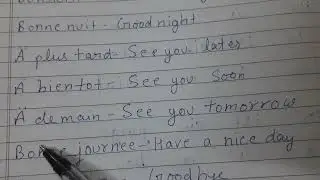 Bonne nuit - Goodnight
A plus tard - See you later
A bientot - See you soon
A demain - See you tomorrow
Bonne journee - Have a nice day
Goodbye